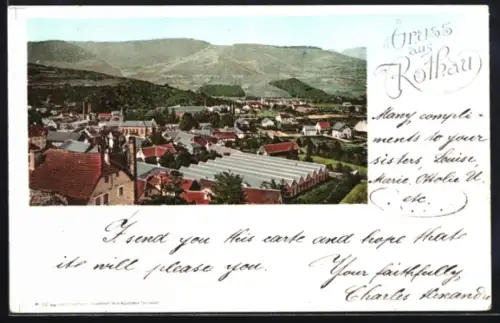 Gruss
aus
Rothau
Many compli-
ments to your
sisters, Louise,
Marie, Ottolie U.
etc.
I send you this carte and hope that
its will please you.
Your faithfully,
Charles Alexandre